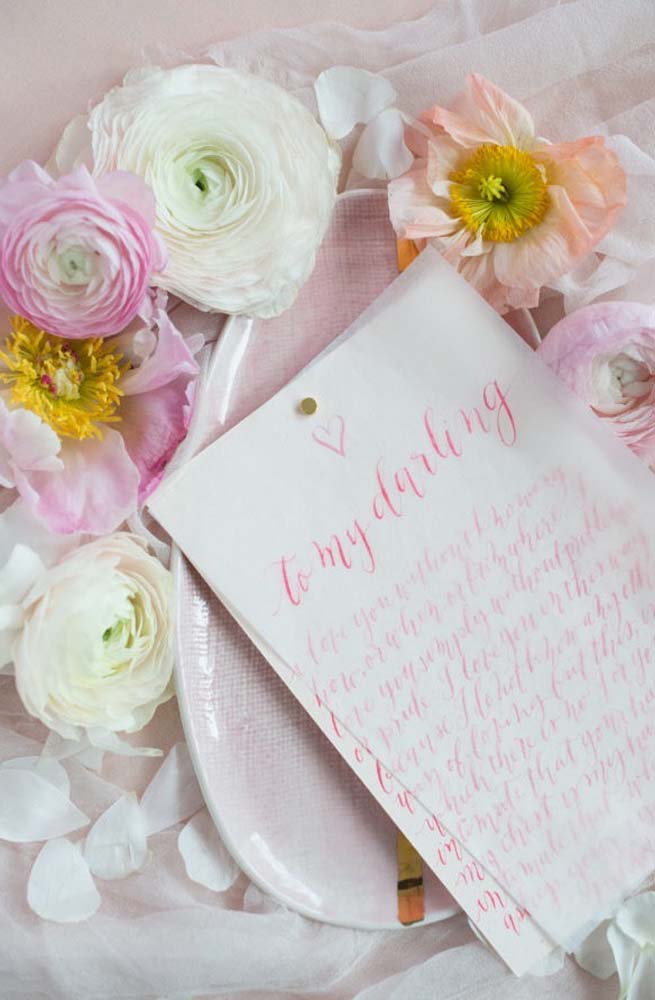 to my darling
i love you without knowing
how, or when, or from where. I
love you simply, without problems
or pride: I love you in this way
because I do not know any other
way of loving but this, in
which there is no I or you
intimate that your hand
my chest is my hand
intimate that when